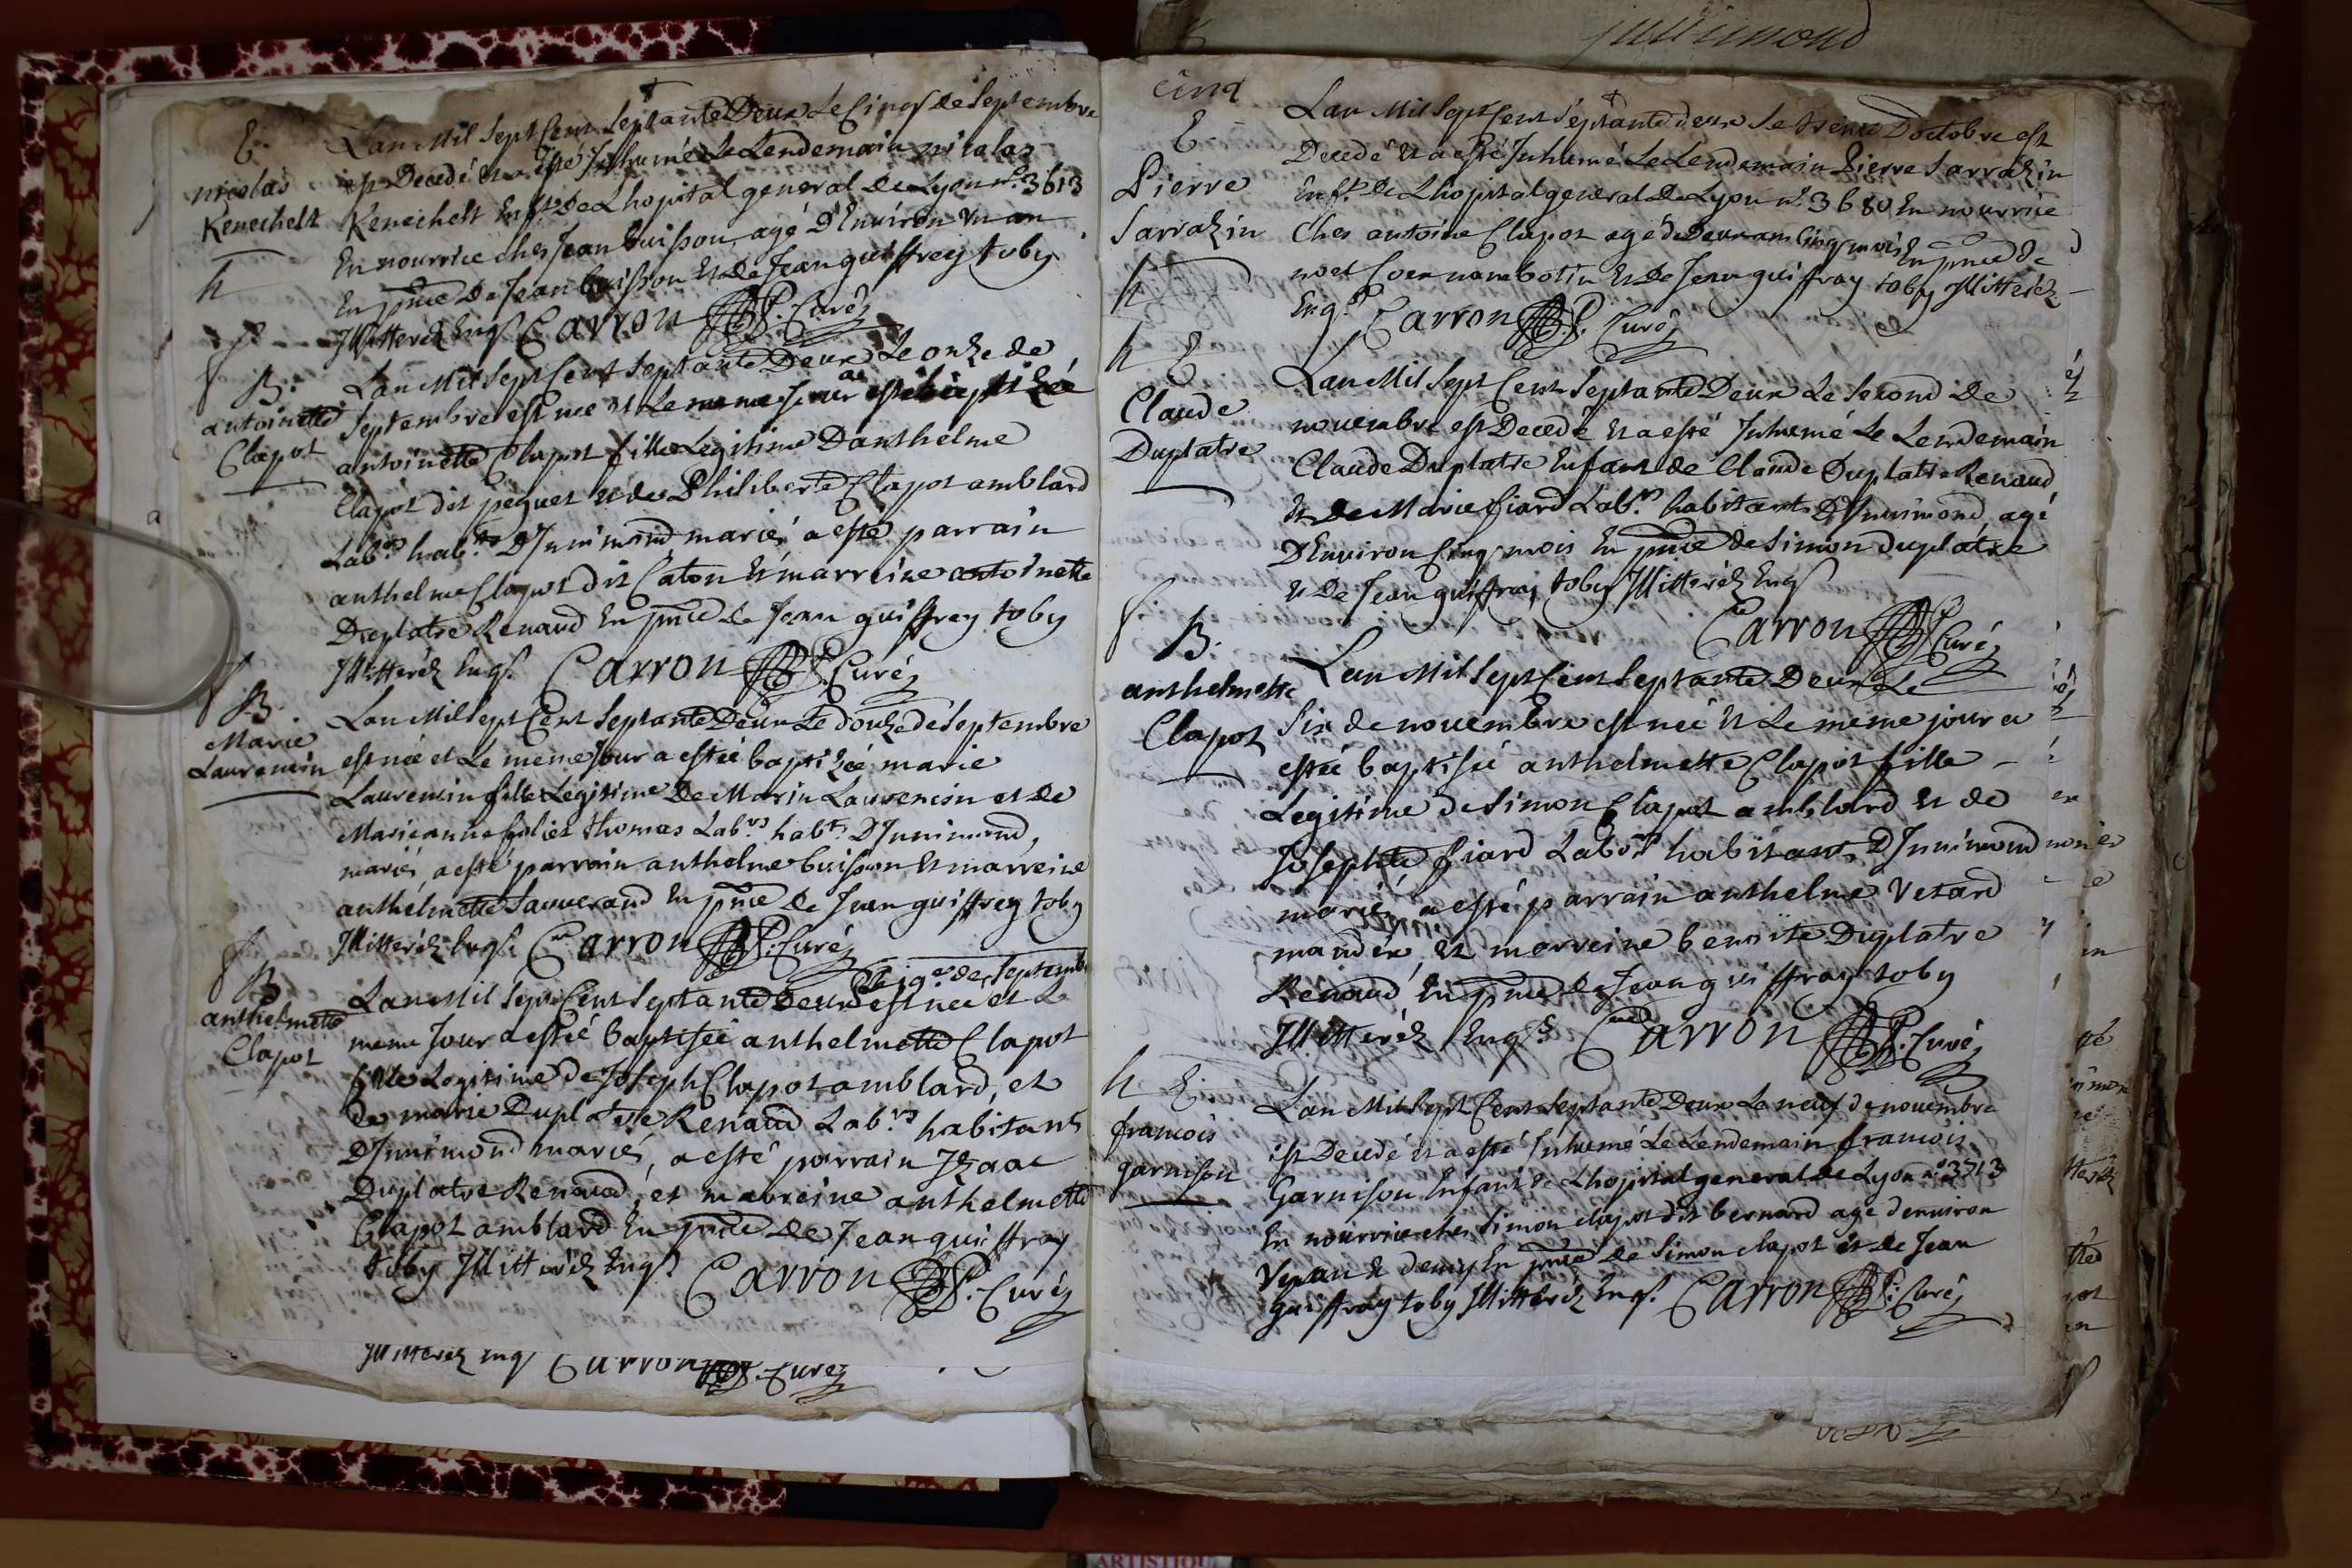 E.
nicolas
Kenechelt
h
Lan Mil Sept Cent Septante Deux Le Cinq de Septembre
est Decedé et a esté Inhumé Le Lendemain nicolas
Kenechelt Enft. De Lhopital general de Lyon n.° 3613
En nourrice ches Jean buisson, agé D'Environ un an
En pnce De Jean buisson Et De Jean guiffrey toby
Illitteréz Enqs. Carron P. Curéz
B.
antoinette
Clapot
Lan Mil Sept Cent Septante Deux Le onze de
Septembre est née et Le meme Jour a esté baptizée
antoinette Clapot fille Legitime D'anthelme
Clapot dit peguet et de Philiberte Clapot amblard
Labrs. habts. D'Innimond mariés a esté parrain
anthelme Clapot dit Caton Et marreine antoinette
Duplatre Renaud En pnce de Jean guiffrey toby
Illitteréz Enqs. Carron P. Curéz
B.
Marie
Laurencin
Lan Mil Sept Cent Septante Deux Le douze de Septembre
est née et Le meme Jour a estée baptizée marie
Laurencin fille Legitime De Marin Laurencin et de
Marieanne thomas Labrs. habts. D'Innimond,
mariés, a esté parrain anthelme buisson Et marreine
anthelmette Sauverand En pnce de Jean guiffrey toby
Illitteréz Enqs. Carron P. Curéz
B
anthelmette
Clapot
Le 19e. de Septemb
Lan Mil Sept Cent Septante Deux est née et Le
meme Jour a estée baptisée anthelmette Clapot
fille Legitime de Joseph Clapot amblard, et
de marie Duplatre Renaud Labrs. habitants
D'Innimond mariés, a esté parrain Izaac
Duplatre Renaud, et marreine anthelmette
Clapot amblard En pnce de Jean guiffray
toby Illitteréz Enqs. Carron P. Curéz
Illitteréz Enqs Carron P. Curéz
Innimond
cinq
E
Pierre
Sarrazin
h
Lan Mil Sept Cent Septante deux Le trente D'octobre est
Decedé Et a esté Inhumé Le Lendemain Pierre Sarrazin
Enft. De Lhopital general De Lyon n.° 3680 En nourrice
Ches antoine Clapot agé de Deux ans Cinq mois En pnce de
noel botin Et De Jean guiffray toby Illitteréz
Enqs. Carron P. Curéz
h E
Claude
Duplatre
Lan Mil Sept Cent Septante Deux Le Second De
novembre est Decedé Et a esté Inhumé Le Lendemain
Claude Duplatre Enfant de Claude Duplatre Renaud
Et De Marie fiard Labrs. habitants D'Innimond, agé
D'Environ Cinq mois En pnce de Simon Duplatre
Et De Jean guiffray toby Illitteréz Enqs
Carron P. Curéz
B.
anthelmette
Clapot
Lan Mil Sept Cent Septante Deux Le
Six de novembre est née Et Le meme jour a
estée baptisée anthelmette Clapot fille
Legitime de Simon Clapot amblard Et de
Josephte fiard Labrs. habitants D'Innimond
mariés, a esté parrain anthelme Vetard
et marreine benoite Duplatre
Renaud, En pnce de Jean guiffray toby
Illitteréz Enqs. Carron P. Curéz
h E
francois
garnison
Lan Mil Sept Cent Septante Deux Le neuf de novembre
est Decedé et a esté Inhumé Le Lendemain francois
Garnison Enfant de Lhopital general de Lyon n.° 3713
En nourrice ches Simon Clapot dit bernard agé d'environ
un an Et demy En pnce de Simon Clapot et de Jean
Guiffray toby Illitteréz Enqs. Carron P. Curéz
ARTISTIQU